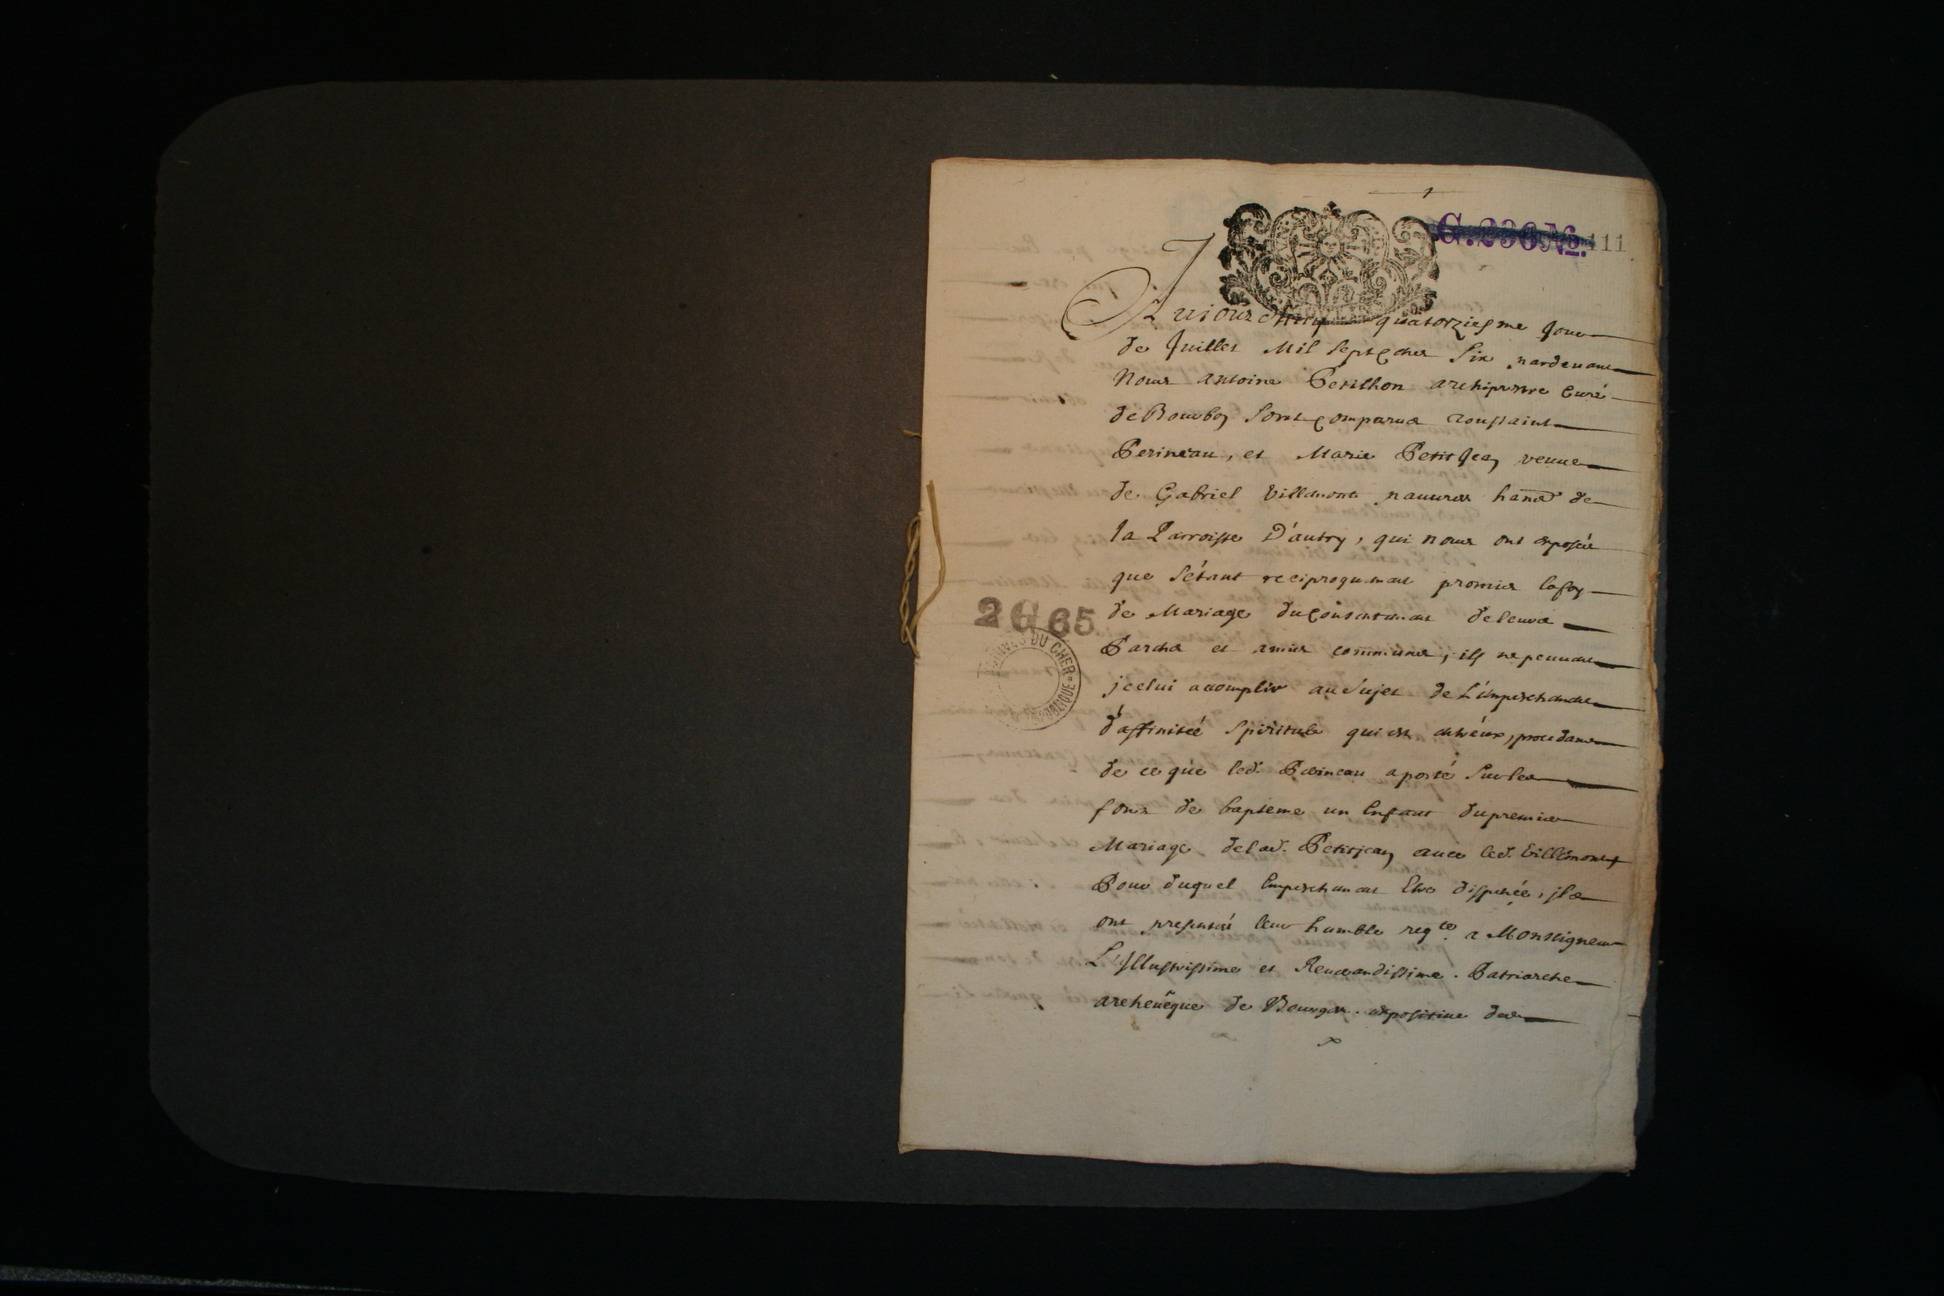 1
G. 236 No. 111
Aujourd'huy quatorziesme Jour
de Juillet Mil Sept cens Six pardevant
Nous antoine Petilhon archiprestre Curé
de Bourbon Sont comparus toussaint
Perineau, et Marie Petit Jean veuue
de Gabriel Villemont pauures hand de
la Parroisse D'autry, qui nous ont exposés
que s'étant reciproquement promis la foy
de Mariage du Consentement de leurs
Parens et amis communs, ils ne peuuent
jcelui acomplir au sujet de L'empeschement
d'affinitéé spirituele qui est entr'eux, procedant
de ce que led. Perineau a porté Sur les
fons de bapteme un Enfant du premier
Mariage de lad. Petitjean auec led. Villemont
Pour duquel Empeschement Etre dispensés, jls
ont presenté leur humble reqte. a Monseigneur
L'jllustrissime et Reuerendissime. Patriarche
archeuêque de Bourges. expositiue des
2 G 65
ARCHIVES DU CHER